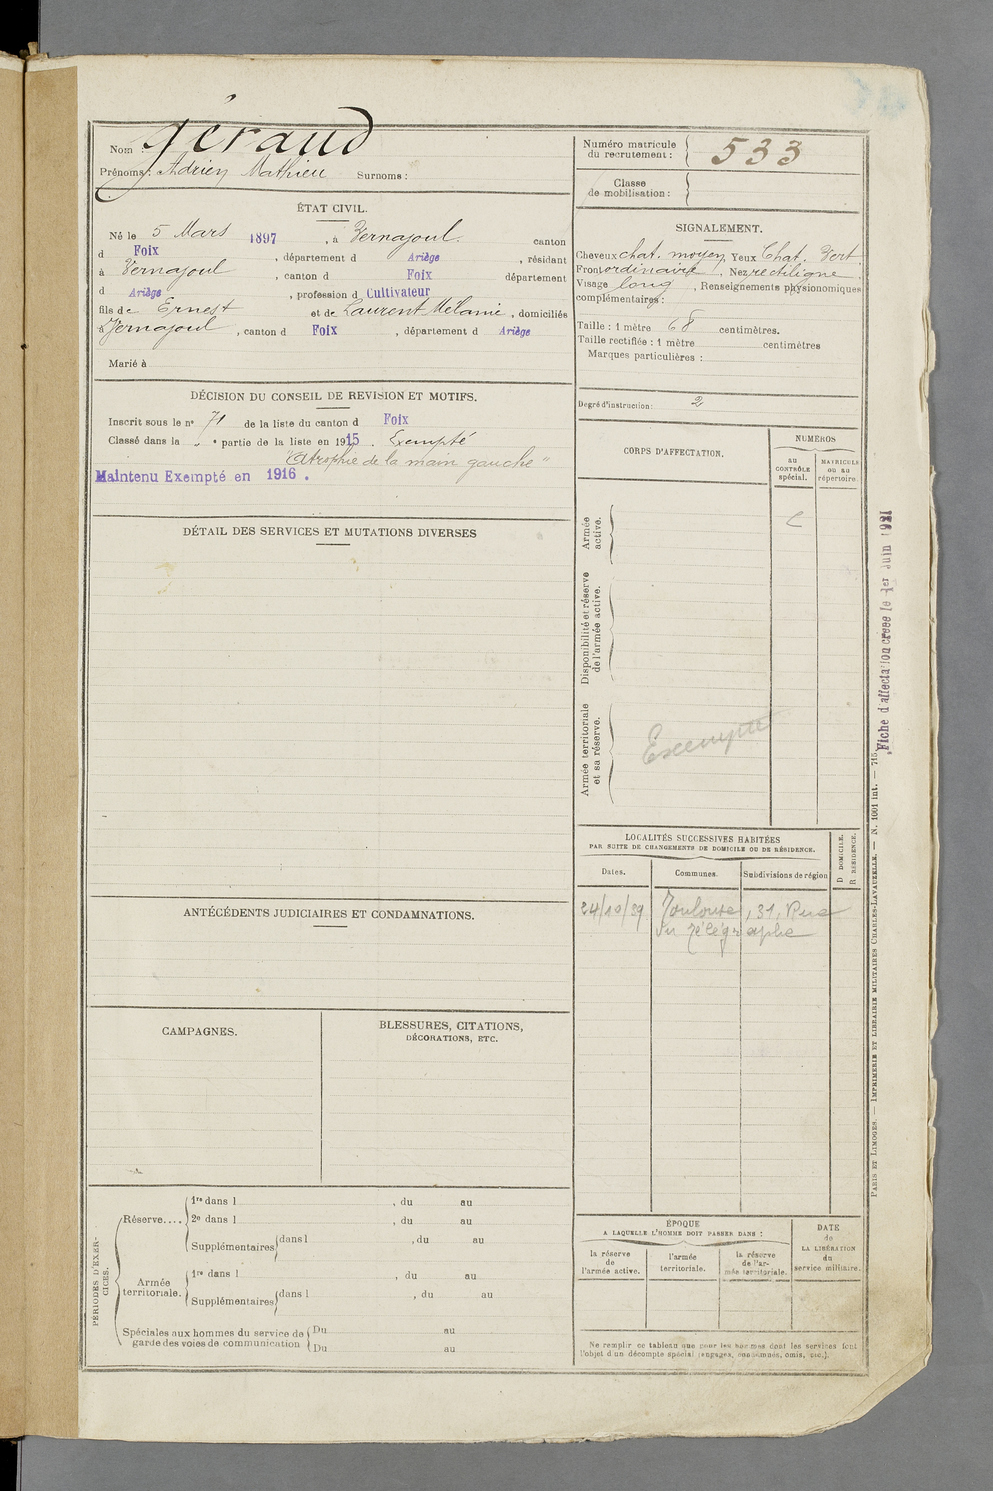 Nom : Géraud
Prénoms : Adrien Mathieu Surnoms :
Numéro matricule du recrutement : 533
Classe de mobilisation :
ÉTAT CIVIL.
Né le 5 Mars 1897, à Vernajoul canton
d Foix, département d Ariège, résidant
à Vernajoul, canton d Foix département
d Ariège, profession d Cultivateur
fils de Ernest et de Laurent Mélanie, domiciliés
à Vernajoul, canton d Foix, département d Ariège
Marié à
SIGNALEMENT.
Cheveux chat. moyen Yeux Chat. Vert
Front ordinaire, Nez rectiligne
Visage long, Renseignements physionomiques
complémentaires :
Taille : 1 mètre 68 centimètres.
Taille rectifiée : 1 mètre centimètres
Marques particulières :
Degré d'instruction : 2
DÉCISION DU CONSEIL DE REVISION ET MOTIFS.
Inscrit sous le n° 71 de la liste du canton d Foix
Classé dans la " e partie de la liste en 1915. Exempté
"Atrophie de la main gauche"
Maintenu Exempté en 1916.
DÉTAIL DES SERVICES ET MUTATIONS DIVERSES
CORPS D'AFFECTATION.
NUMÉROS
au CONTRÔLE spécial.
MATRICULE ou au répertoire.
Armée active.
Disponibilité et réserve de l'armée active.
Armée territoriale et sa réserve.
Exempté
LOCALITÉS SUCCESSIVES HABITÉES
PAR SUITE DE CHANGEMENTS DE DOMICILE OU DE RÉSIDENCE.
Dates. Communes. Subdivisions de région
D DOMICILE.
R RÉSIDENCE.
24/10/39 Toulouse, 31, Rue
du Télégraphe
ANTÉCÉDENTS JUDICIAIRES ET CONDAMNATIONS.
CAMPAGNES.
BLESSURES, CITATIONS,
DÉCORATIONS, ETC.
PÉRIODES D'EXERCICES.
Réserve.... 1re dans l , du au
2e dans l , du au
Supplémentaires dans l , du au
Armée territoriale. 1re dans l , du au
Supplémentaires dans l , du au
Spéciales aux hommes du service de garde des voies de communication
Du au
Du au
ÉPOQUE
A LAQUELLE L'HOMME DOIT PASSER DANS :
la réserve de l'armée active.
l'armée territoriale.
la réserve de l'armée territoriale.
DATE de LA LIBÉRATION du service militaire.
Ne remplir ce tableau que pour les hommes dont les services font
l'objet d'un décompte spécial (engagés, condamnés, omis, etc.).
Fiche d'affectation créée le 1er Juin 1921
PARIS ET LIMOGES. — IMPRIMERIE ET LIBRAIRIE MILITAIRES CHARLES-LAVAUZELLE. — N. 1001 int. — 715